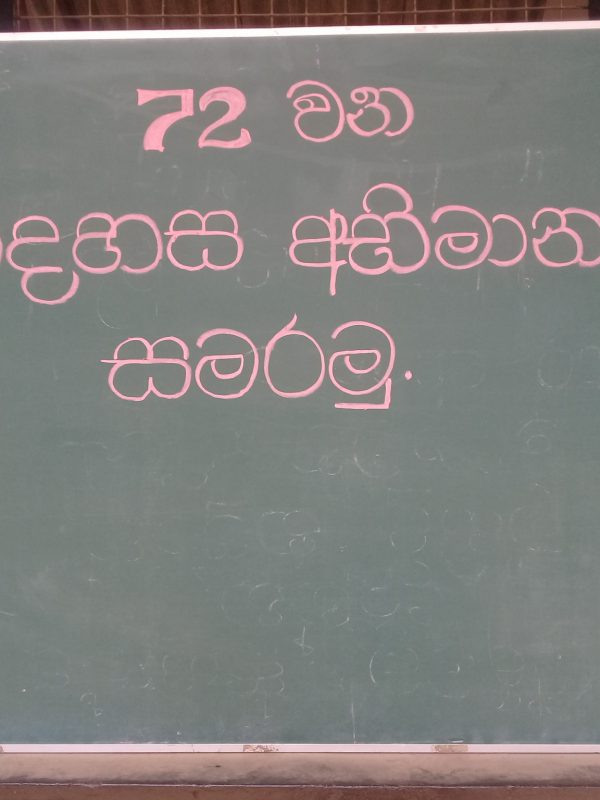 72 වන
දහස අභිමාන
සමරමු.